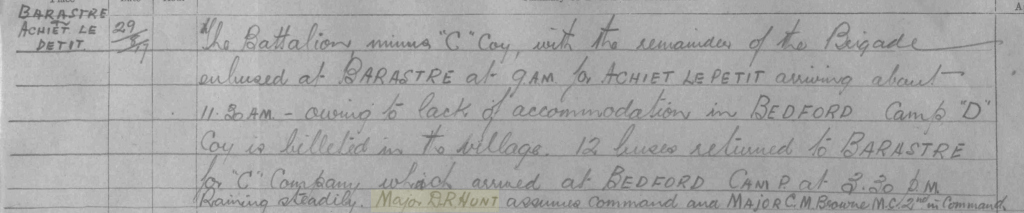 BARASTRE
ACHIET LE
PETIT
29
The Battalion, minus "C" Coy, with the remainder of the Brigade
enbused at BARASTRE at 9AM for ACHIET LE PETIT arriving about
11.30AM - owing to lack of accommodation in BEDFORD Camp "D"
Coy is billeted in the village. 12 buses returned to BARASTRE
for "C" Company which arrived at BEDFORD CAMP at 2.20 PM
Raining steadily. Major D.R HUNT assumes command and MAJOR C.M. Browne M.C. 2nd in Command